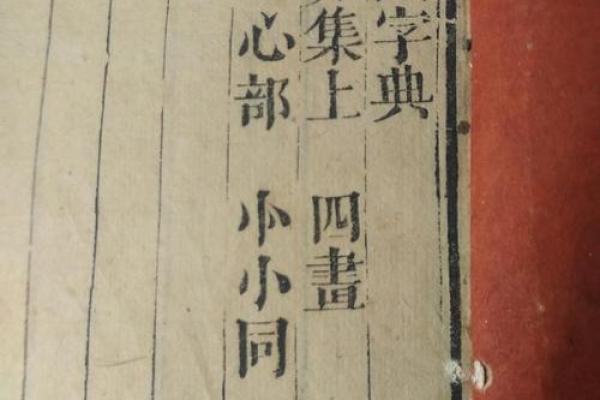 字典
集上 四畫
心部 忄小同